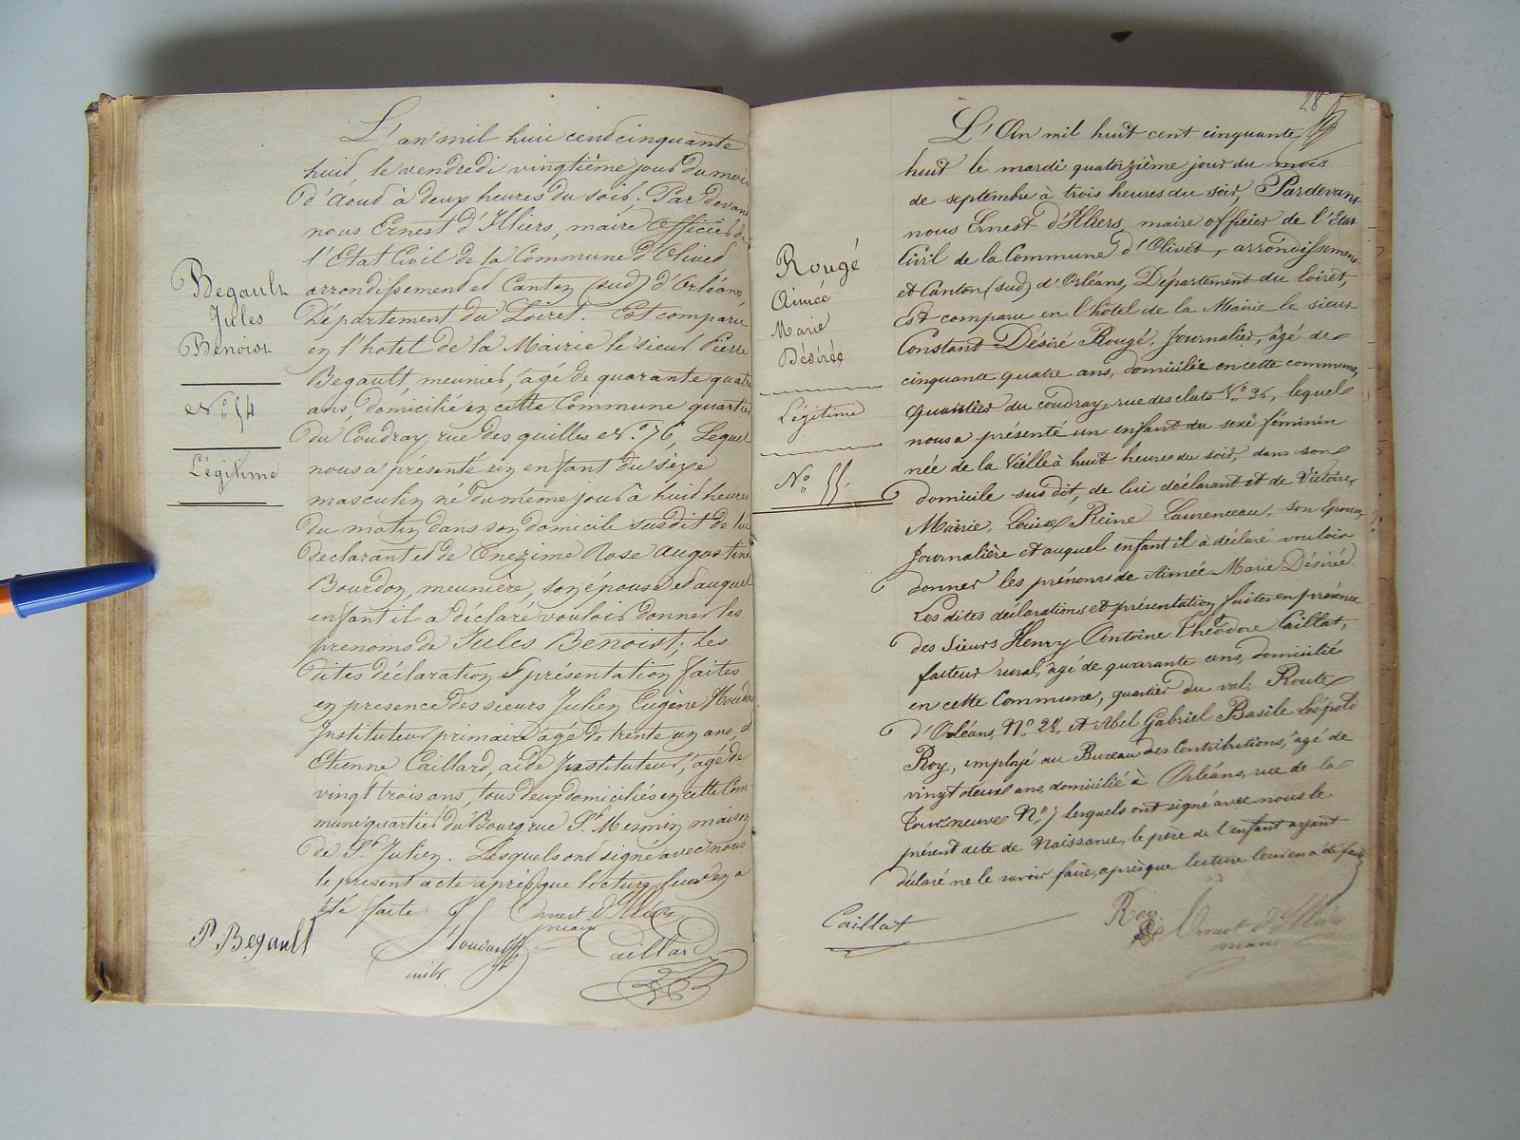 Begault
Jules
Benoist
N.o 54
Légitime
L'an mil huit cent cinquante
huit, le vendredi vingtième jour du mois
d'Aoud à deux heures du soir. Par devant
nous Ernest d'Illiers, maire officier de
l'Etat Civil de la Commune d'Olivet
arrondissement et Canton (sud) d'Orléans,
Département du Loiret. Est comparu
en l'hotel de la Mairie le sieur Pierre
Begault, meunier, âgé de quarante quatre
ans, domicilié en cette Commune quartier
du Coudray, rue des quilles N.o 76, Lequel
nous a présenté un enfant du sexe
masculin né du même jour à huit heures
du matin dans son domicile susdit de lui
declarant et de Onezime Rose Augustine
Bourdon, meunière, son épouse et auquel
enfant il a déclaré vouloir donner les
prenoms de Jules Benoist; les
dites déclaration et présentation faites
en presence des sieurs Julien Eugène
Instituteur primaire âgé de trente un ans, et
Etienne Caillard, aide Instituteur, âgé de
vingt trois ans, tous deux domiciliés en cette Com
mune quartier du Bourg rue St Mesmin maison
de St Julien. Lesquels ont signé avec nous
le present acte après que lecture leur en a
été faite
P. Begault
Ernest d'Illiers
maire
Caillard
28
L'An mil huit cent cinquante
huit le mardi quatorzième jour du mois
de septembre à trois heures du soir, Pardevant
nous Ernest d'Illiers, maire officier de l'Etat
Civil de la Commune d'Olivet, arrondissement
et Canton (sud) d'Orléans, Département du Loiret,
Est comparu en l'hôtel de la Mairie le sieur
Constant Désiré Rougé, Journalier, âgé de
cinquante quatre ans, domicilié en cette commune,
quartier du coudray, rue des clats No 36, lequel
nous a présenté un enfant du sexe féminin
née de la Veille à huit heures du soir, dans son
domicile sus dit, de lui déclarant et de Victoire,
Marie, Louise Reine Laurenceau, son épouse,
Journalière et auquel enfant il a déclaré vouloir
donner les prénoms de Aimée Marie Désiré
Les dites déclarations et présentation faites en présence
des Sieurs Henry Antoine Théodore Caillat,
facteur rural, âgé de quarante ans, domicilié
en cette Commune, quartier du val, Route
d'Orléans, No 28, et Abel Gabriel Basile Léopold
Roy, employé au Bureau des Contributions, âgé de
vingt deux ans domicilié à Orléans, rue de la
Tour neuve No 7 lesquels ont signé avec nous le
présent acte de Naissance, le père de l'enfant ayant
déclaré ne le savoir faire, après que lecture leur en a été faite
Rougé
Aimée
Marie
Désirée
Légitime
No 55.
Caillat
Roy
Ernest d'Illiers
maire